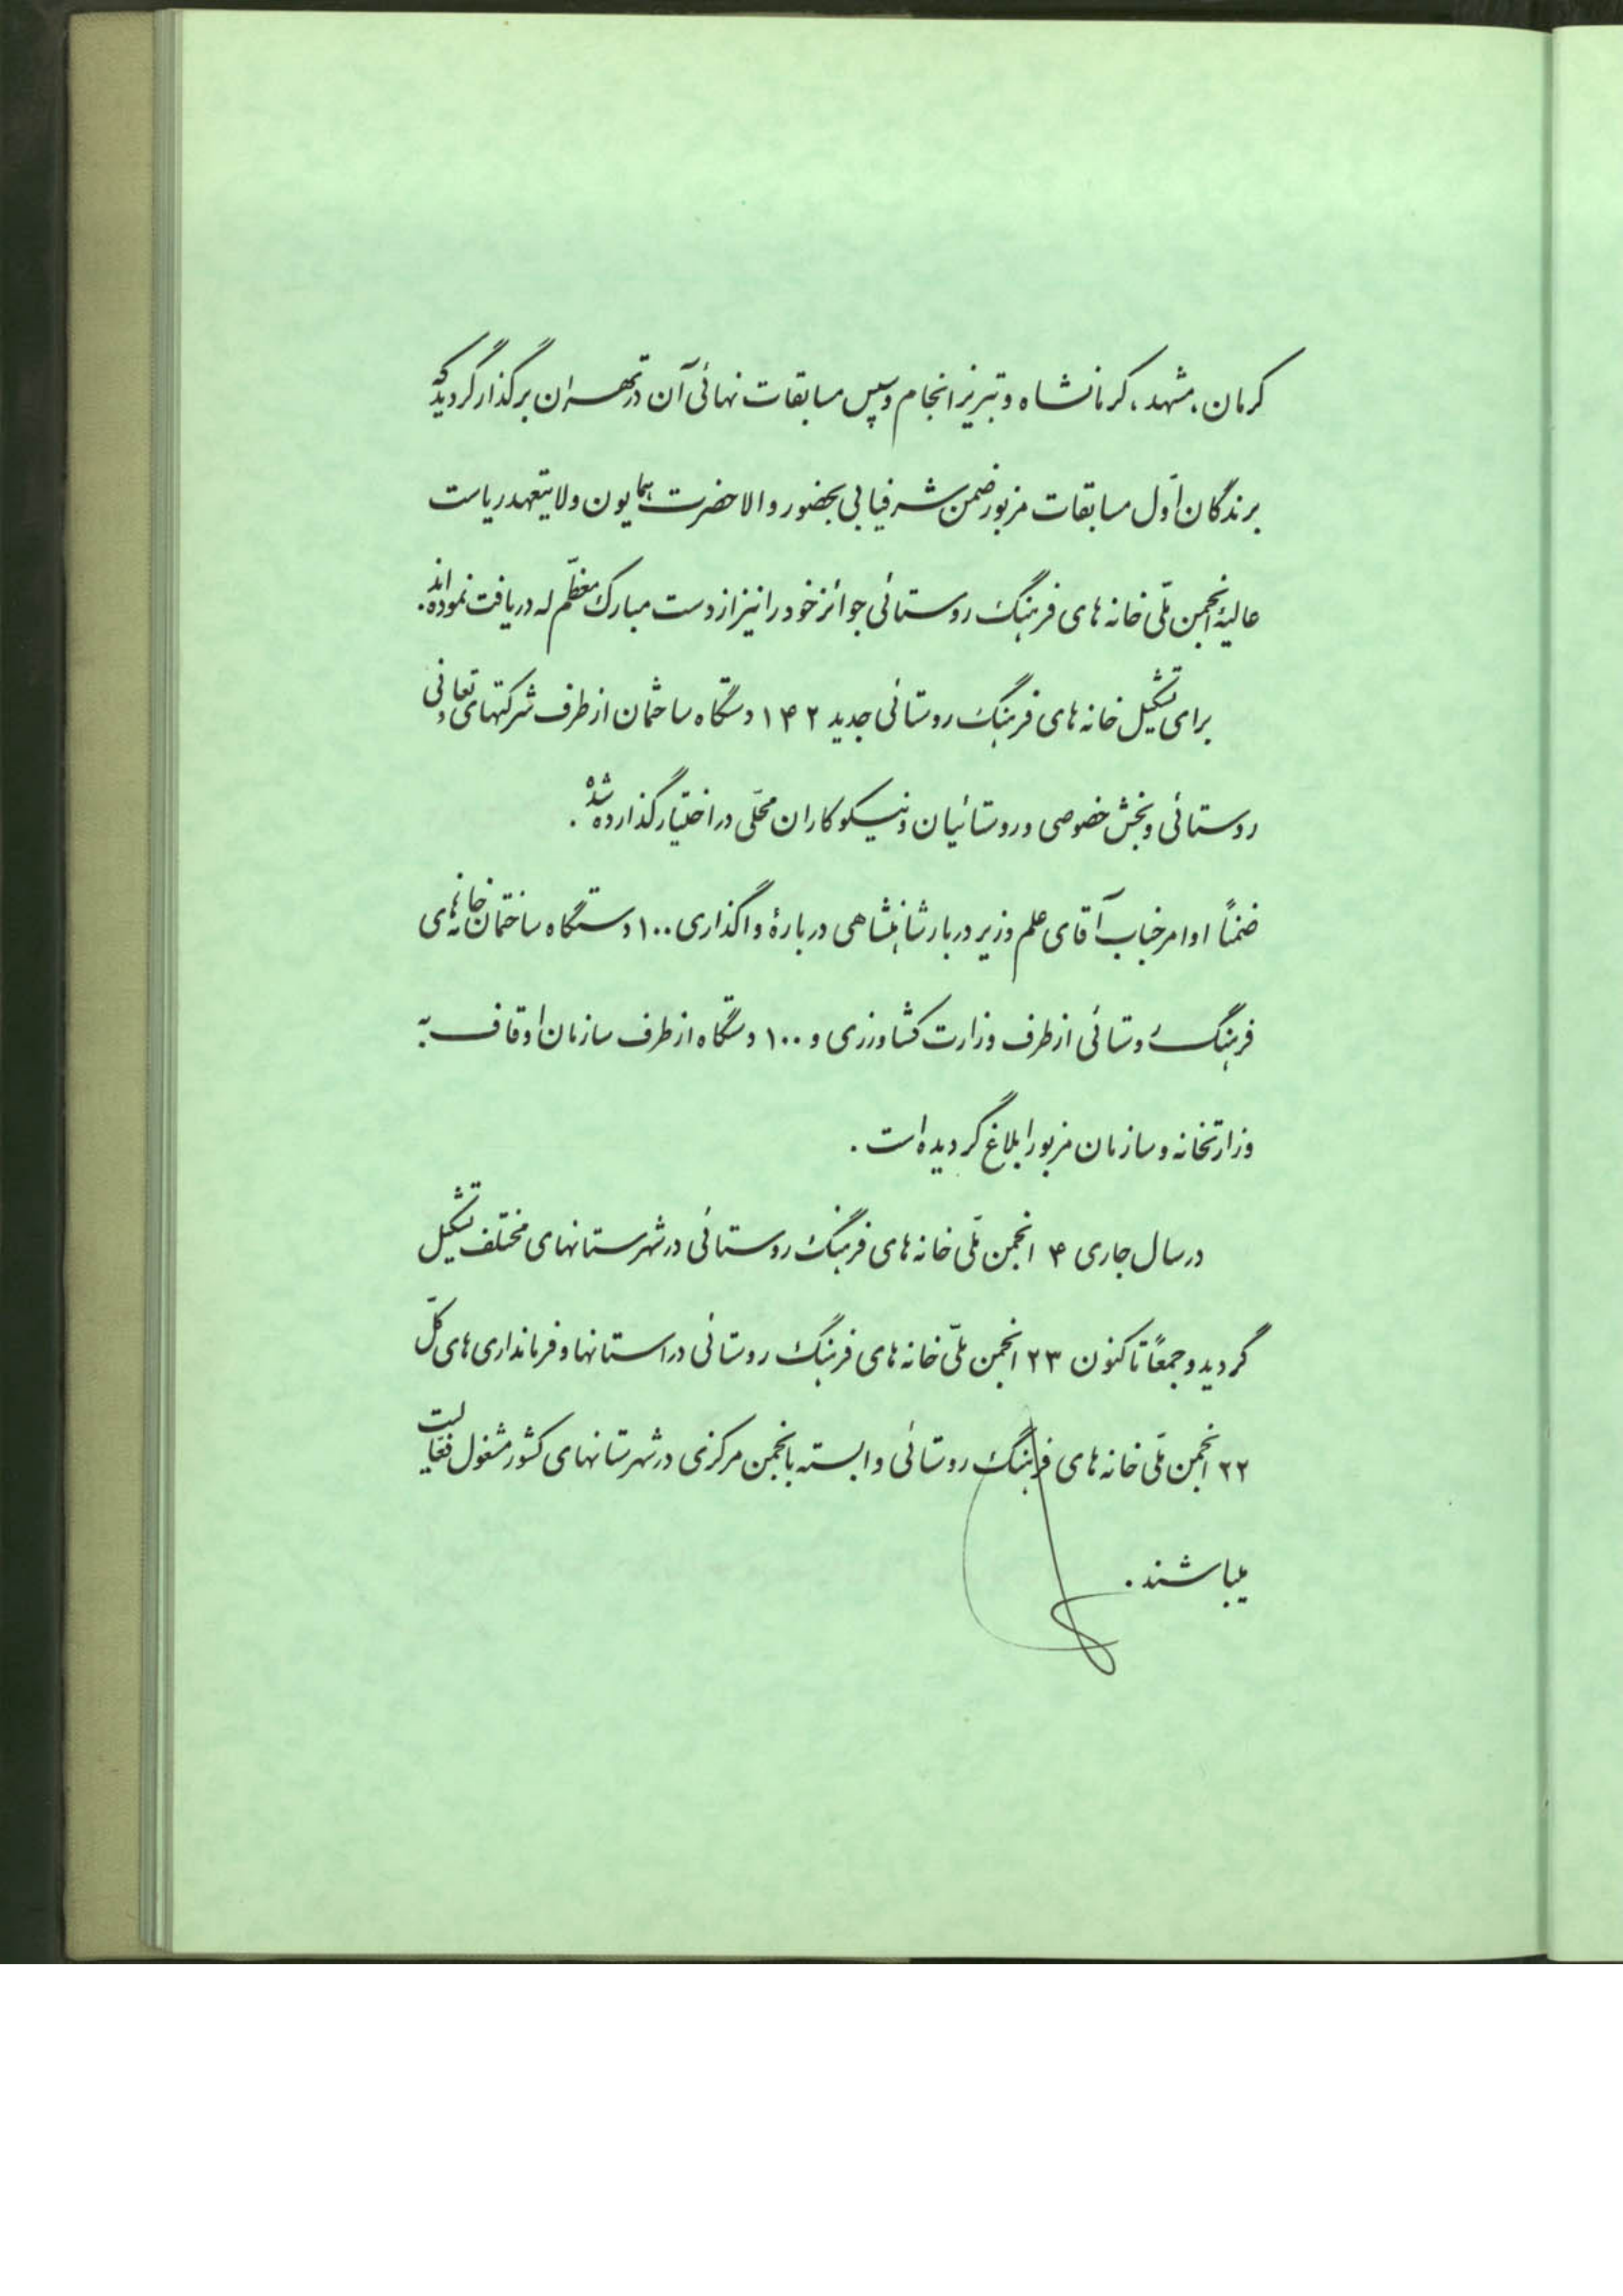 کرمان، مشهد، کرمانشاه و تبریز انجام و سپس مسابقات نهائی آن در تهران برگذار گردید که
برندگان اوّل مسابقات مزبور ضمن شرفیابی بحضور والاحضرت همایون ولایتعهد ریاست
عالیهٔ انجمن ملّی خانه های فرهنگ روستائی جوائز خود را نیز از دست مبارک معظّم له دریافت نموده اند.
برای تشکیل خانه های فرهنگ روستائی جدید ۱۴۲ دستگاه ساختمان از طرف شرکتهای تعاونی
روستائی و بخش خصوصی و روستائیان و نیکوکاران محلّی در اختیار گذارده شد.
ضمناً اوامر جناب آقای علم وزیر دربار شاهنشاهی دربارهٔ واگذاری ۱۰۰ دستگاه ساختمان خانه های
فرهنگ روستائی از طرف وزارت کشاورزی و ۱۰۰ دستگاه از طرف سازمان اوقاف به
وزارتخانه و سازمان مزبور ابلاغ گردیده است.
در سال جاری ۴ انجمن ملّی خانه های فرهنگ روستائی در شهرستانهای مختلف تشکیل
گردید و جمعاً تاکنون ۲۳ انجمن ملّی خانه های فرهنگ روستائی در استانها و فرمانداری های کلّ
۲۲ انجمن ملّی خانه های فرهنگ روستائی وابسته بانجمن مرکزی در شهرستانهای کشور مشغول فعّالیت
میباشند.